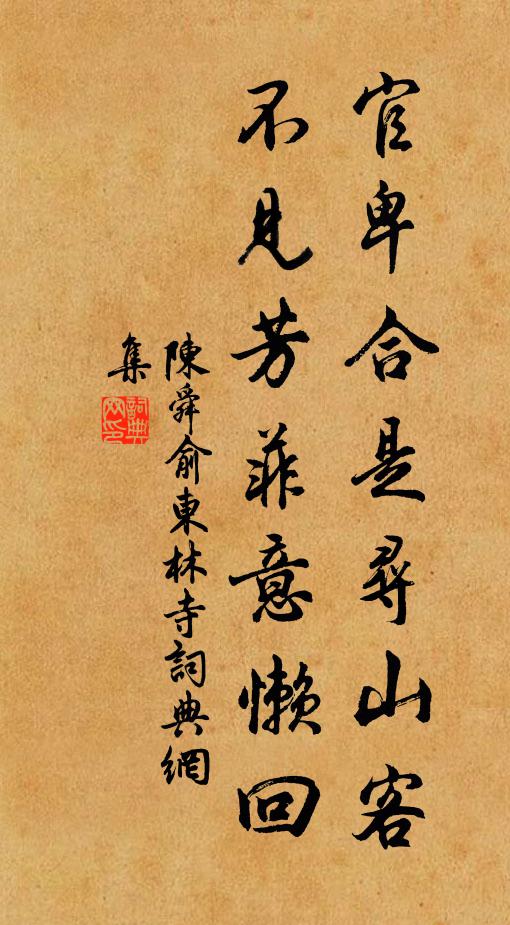 官卑合是尋山客
不見芳菲意懶回
陳舜俞東林寺詞典網
集
詞典網印